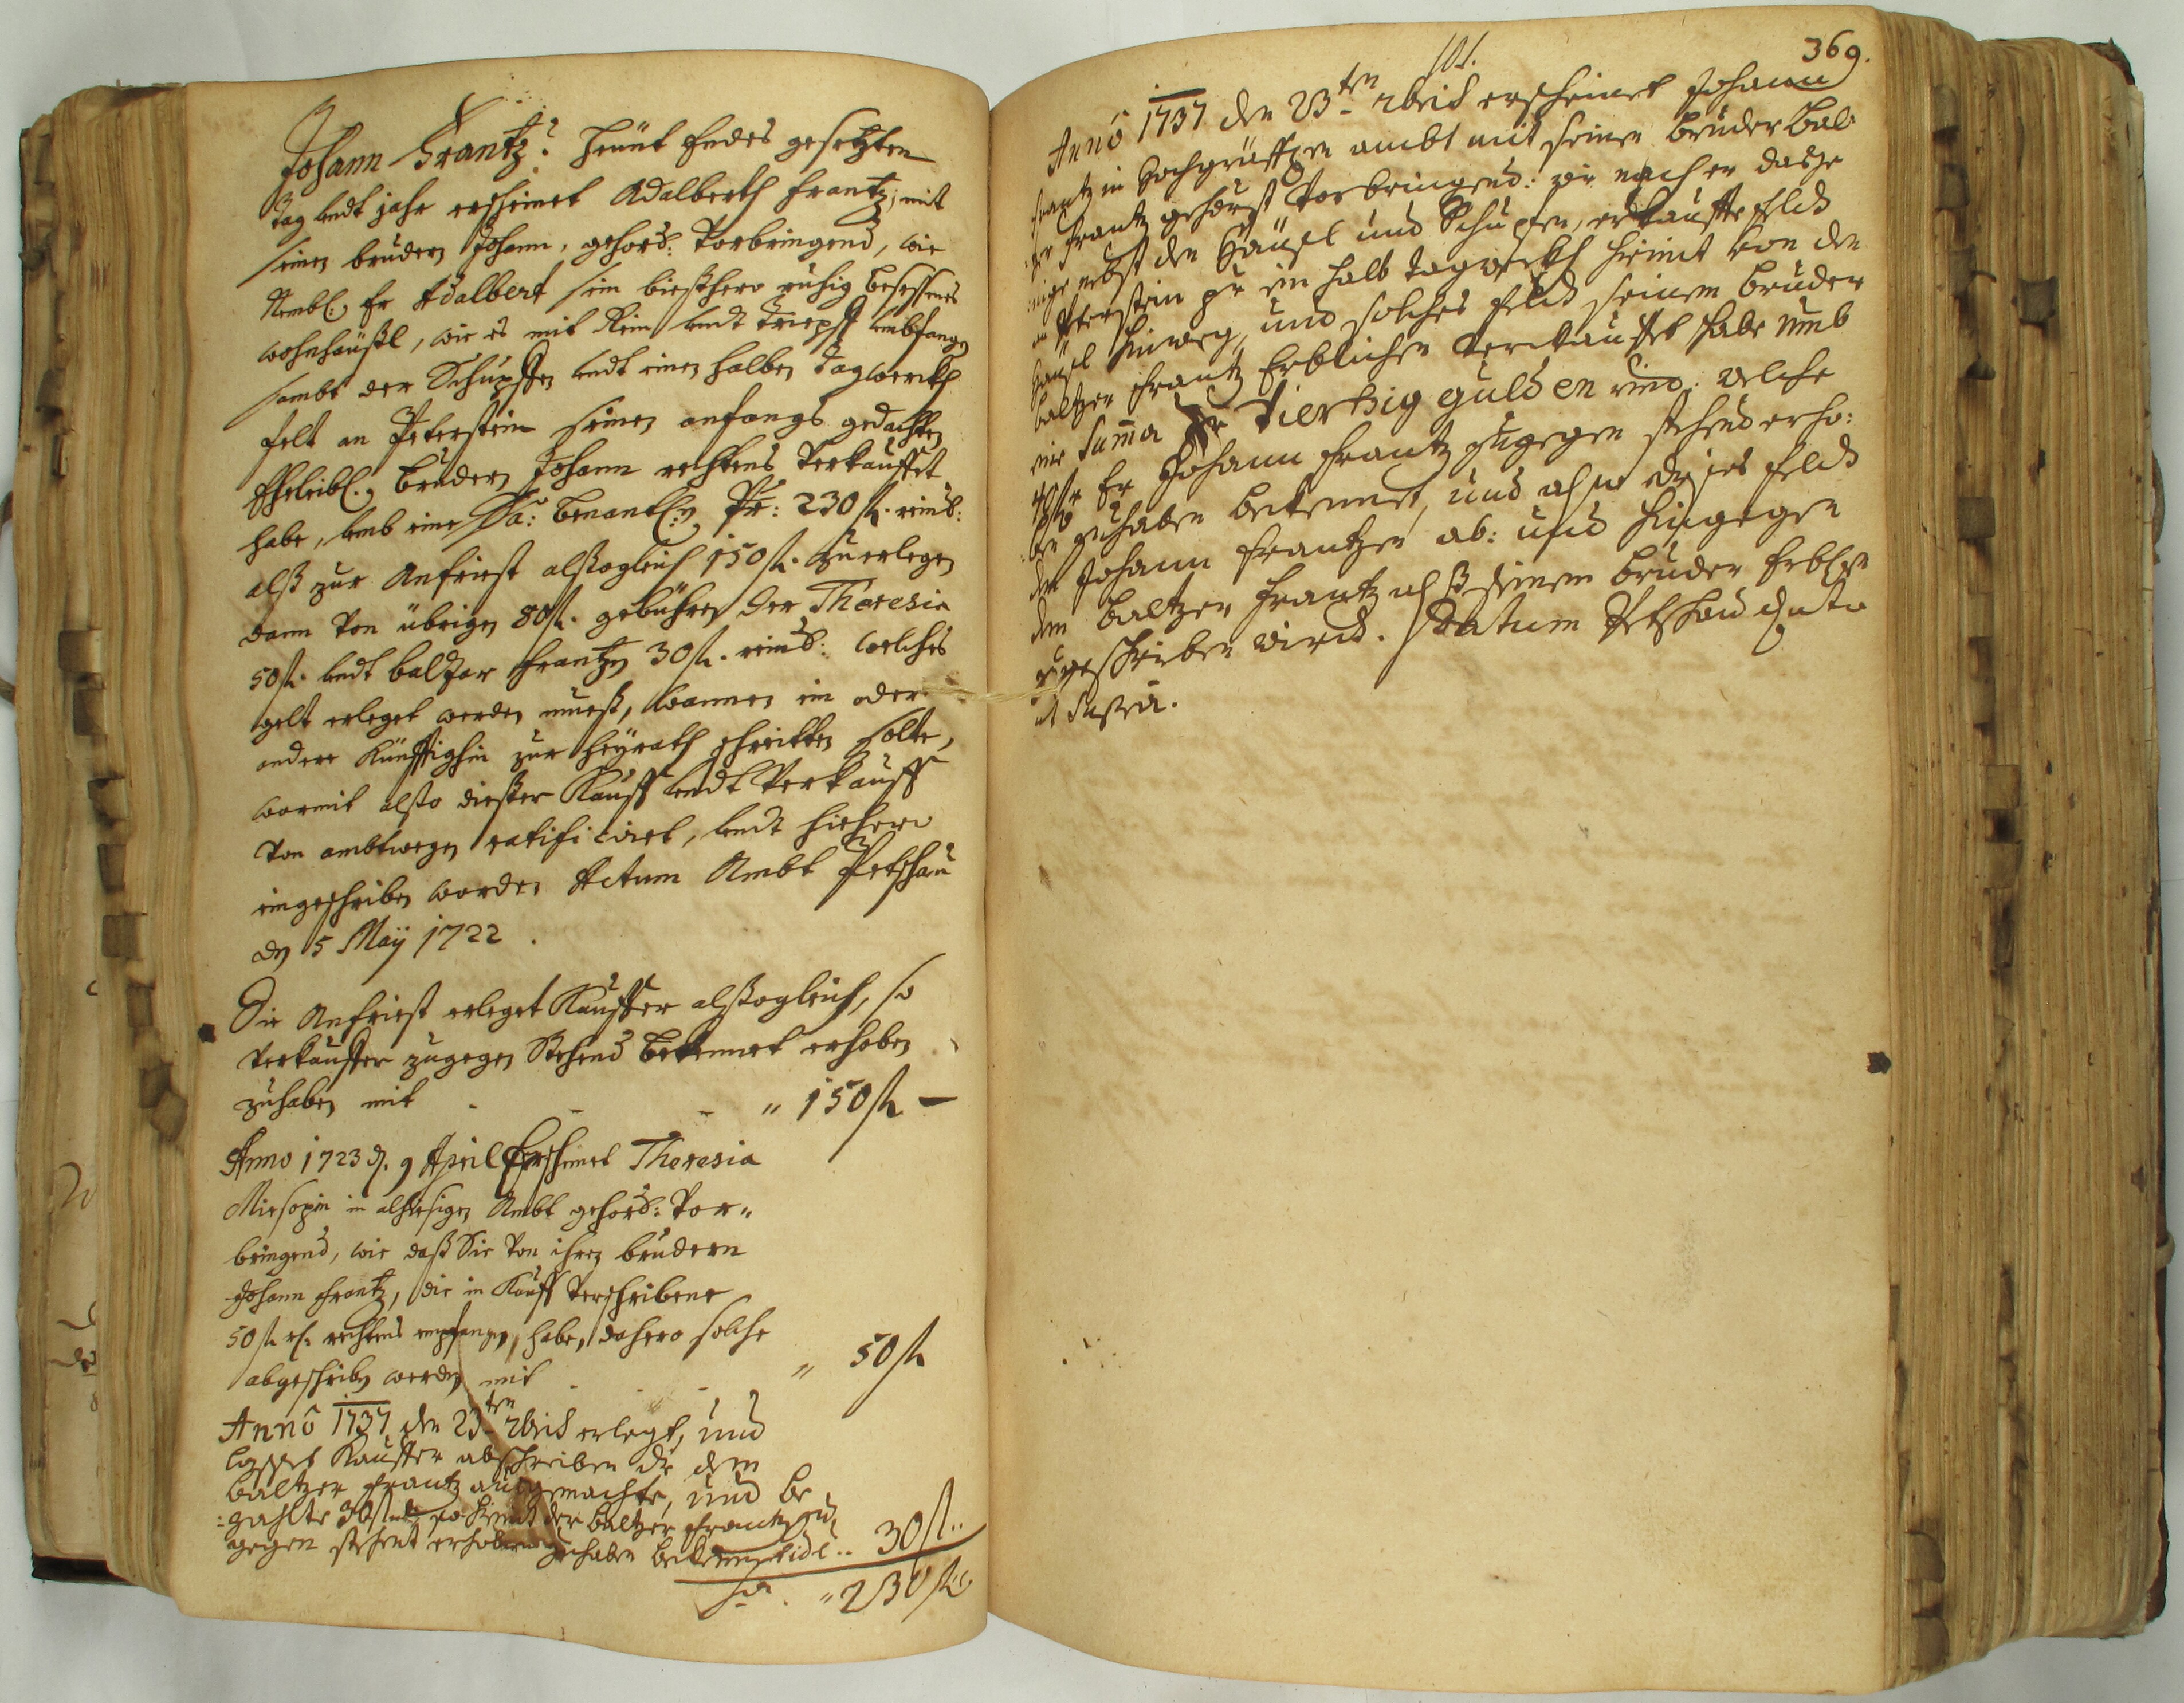 Johann Frantz. Heünt Endes gesetzten
tag undt jahr erscheinet Adalberth Frantz, mit
seinen brudern Johann, gehors: vorbringend, wie
Nembl: Er Adalbert sein bießhero ruhig besessenes
wohnhäußl, wie es mit Rein undt umbfangen
sambt der Schupffen undt einen halben Tagwerckh
felt an Peterstein seinen anfangs gedachten
Eheleibl: Brudern Johann rechtens verkauffet
habe, umb eine Sa: benantl: Pr: 230 fl. reins:
alß zur Anfriest alßogleich 150 fl. zu erlegen
dann von übrigen 80 fl. gebühren der Theresia
50 fl. undt baltzar Frantzen 30 fl. reins: welches
gelt erleget werden mueß, wannen ein oder
andere künfftighin zur heyrath schreitten solte,
wormit alßo dießer Kauff undt Verkauff
von ambtwegen ratificiret, undt hiehero
eingeschriben worden Actum Ambt Petschau
den 5 Maÿ 1722.
Die Anfriest erleget Kauffer alßogleich, so
Verkauffer zugegen stehend bekennet erhoben
zuhaben mit - - - " 150 fl —
Anno 1723 d. 9 April Erscheinet Theresia
in alhiesigen Ambt gehors: vor"
bringend, wie daß Sie von ihren brudern
Johann Frantz, die in Kauff verschribene
50 fl rh. rechtens empfangen habe, dahero solche
abgeschriben werden mit - - " 50 fl
Annô 1737 den 23ten erlegt, und
lasset Kauffer abschreiben die dem
baltzer Frantz außgemachte, und be
:zahlte 30 fl der baltzer Frantz zu
gegen stehent erhoben zuhaben bekennet id est.. 30 fl..
Sa. " 230 fl
101. 369.
Annô 1737 den 23ten erscheinet Johann
Frantz in Hochgräffl. ambt mit seinen bruder Bal:
zer Frantz gehorst vorbringend: wie nach er daß
nige nebst den Häußel und Schupfen, erkauffte feld
an Peterstein pr ein halb tagwerckh hiemit von den
Häußel hinweg, und solches feld seinem bruder
baltzer Frantz Erblichen verkauffet habe umb
eine Summa pr vierzig gulden rein: welche
Er Johann Frantz zugegen stehend erho:
ben zuhaben bekennet, und also dieses feld
den Johann Frantzen ab: und hingegen
dem baltzer Frantz alß seinem bruder Erblichen
zugeschrieben wird. Datum Petschau dato
ut supra.